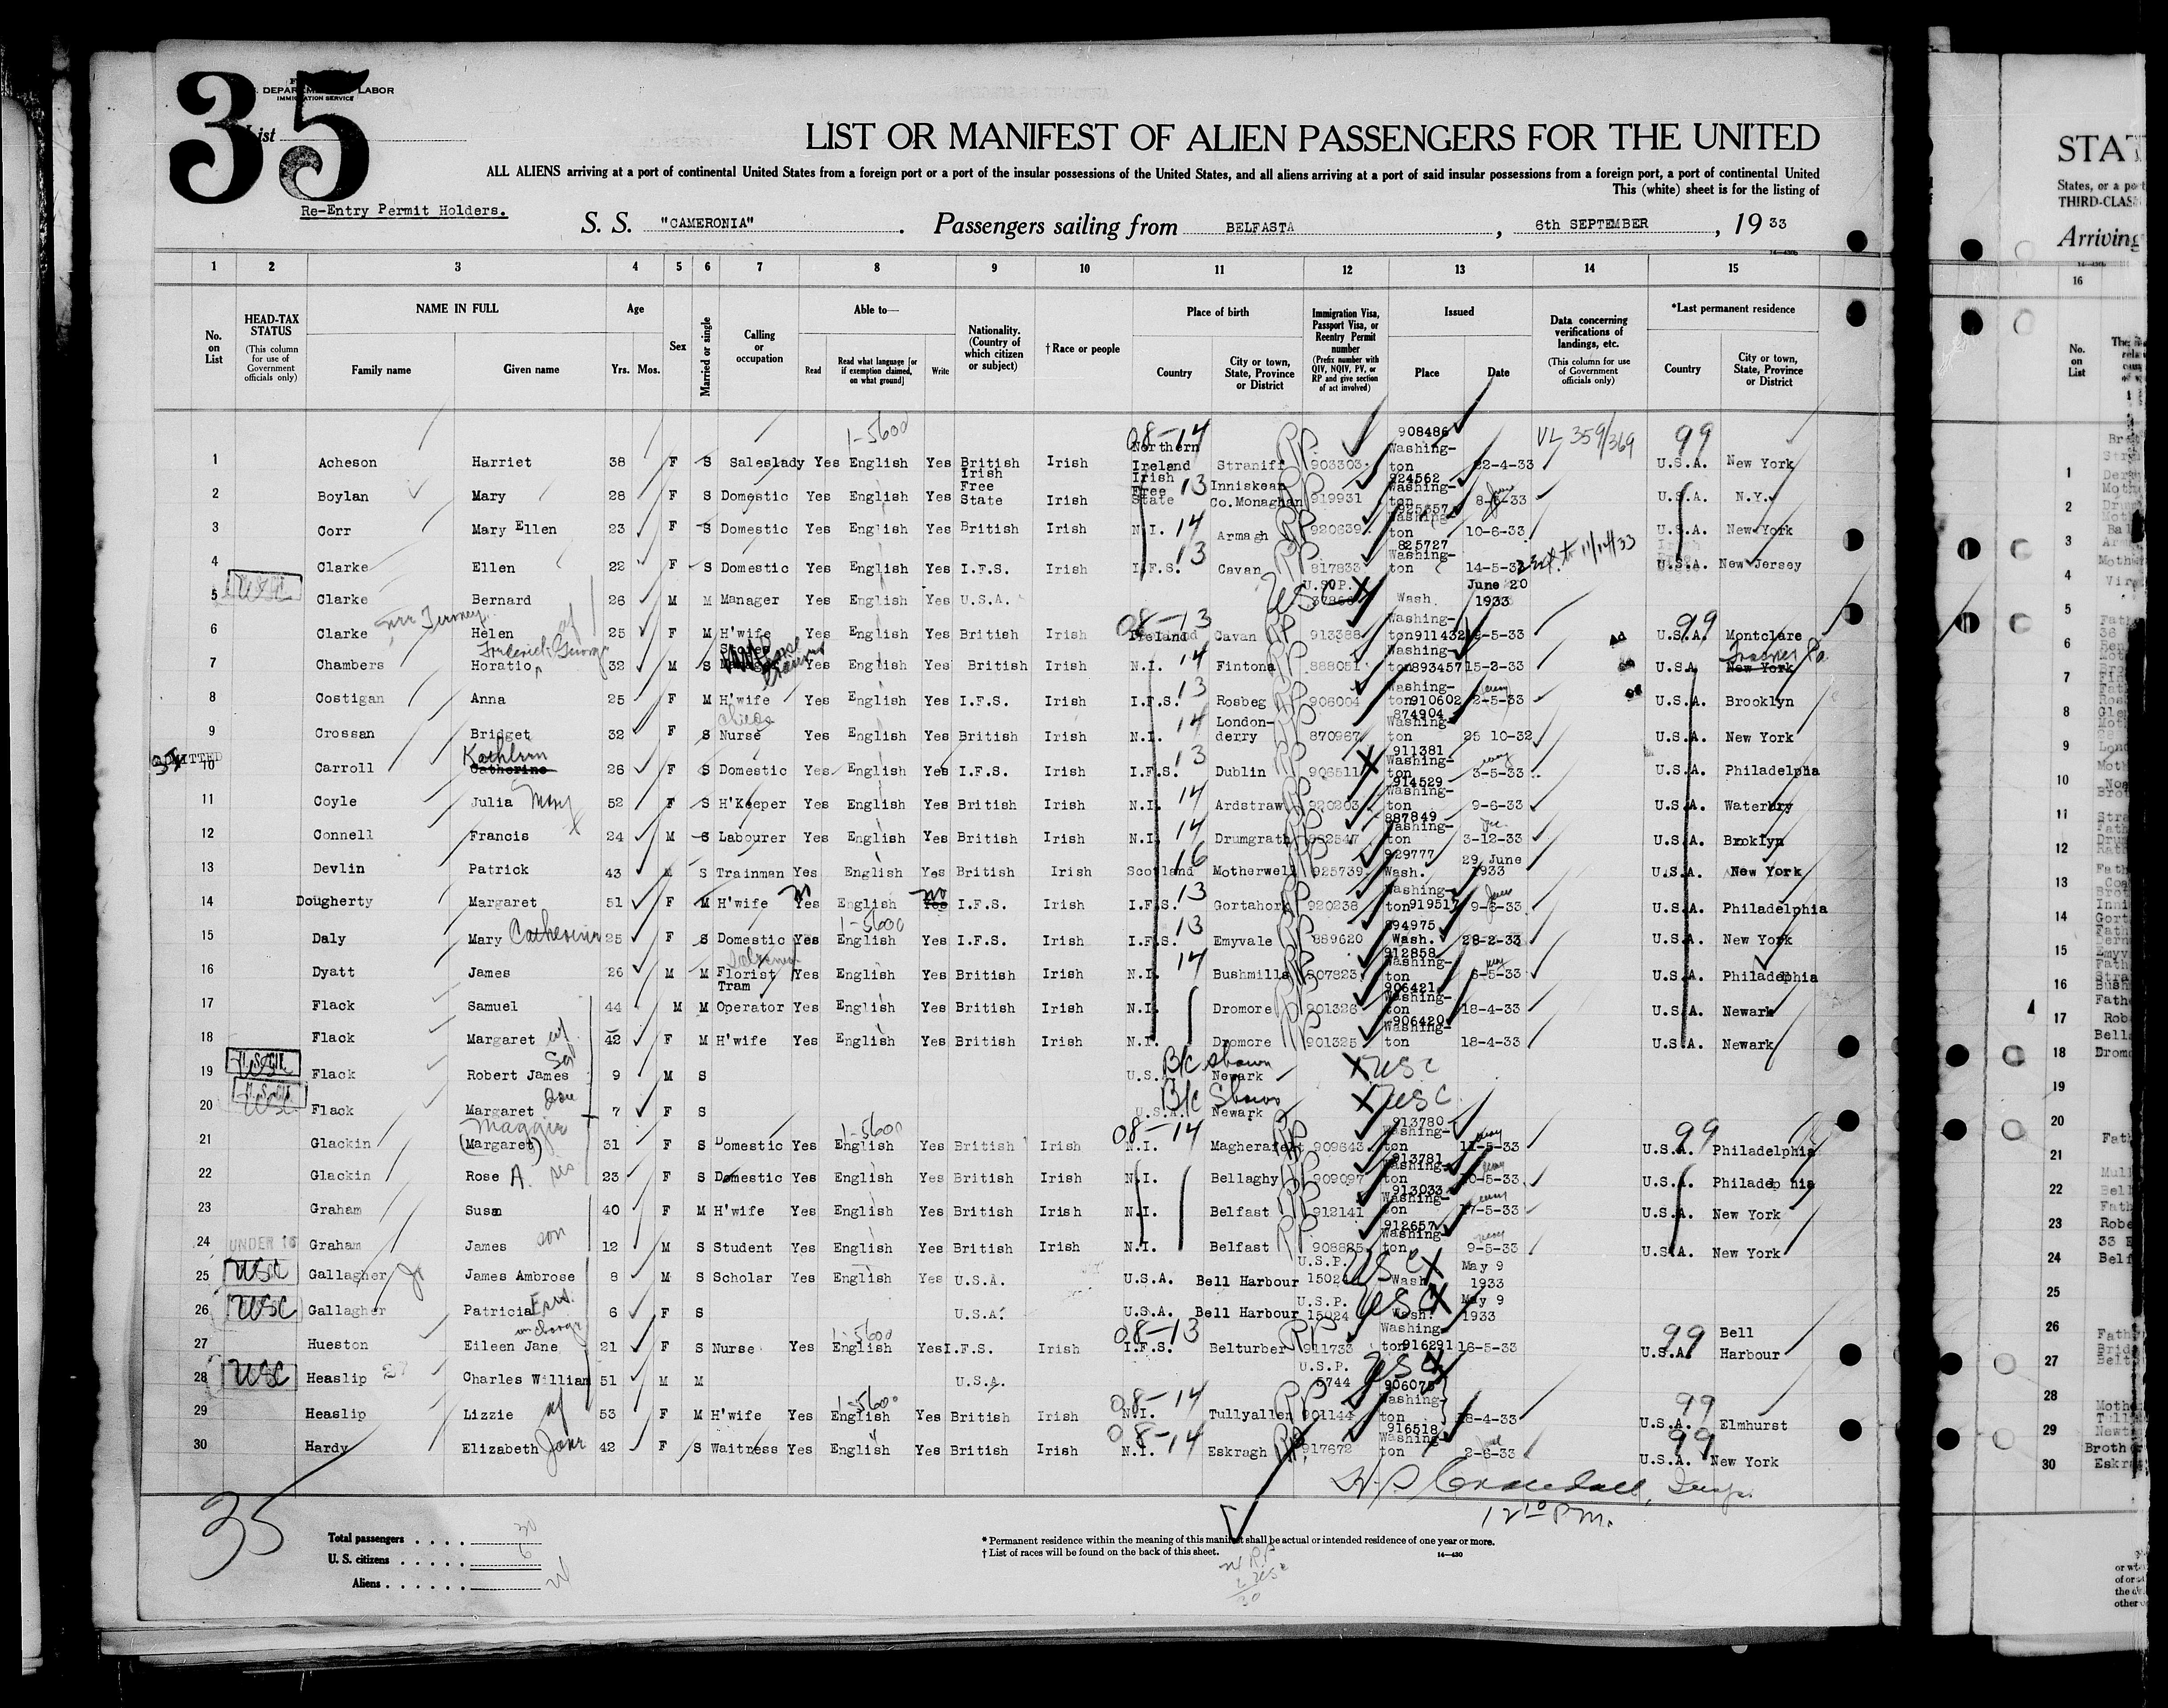 35
DEPARTMENT OF LABOR
IMMIGRATION SERVICE
List
LIST OR MANIFEST OF ALIEN PASSENGERS FOR THE UNITED
ALL ALIENS arriving at a port of continental United States from a foreign port or a port of the insular possessions of the United States, and all aliens arriving at a port of said insular possessions from a foreign port, a port of continental United
This (white) sheet is for the listing of
Re-Entry Permit Holders.
S. S. "CAMERONIA" . Passengers sailing from BELFASTA , 6th SEPTEMBER , 19 33
1 2 3 4 5 6 7 8 9 10 11 12 13 14 15
No. on List
HEAD-TAX STATUS (This column for use of Government officials only)
NAME IN FULL Family name Given name
Age Yrs. Mos.
Sex
Married or single
Calling or occupation
Able to— Read Read what language [or if exemption claimed, on what ground] Write
Nationality. (Country of which citizen or subject)
† Race or people
Place of birth Country City or town, State, Province or District
Immigration Visa, Passport Visa, or Reentry Permit number (Prefix number with QIV, NQIV, PV, or RP and give section of act involved)
Issued Place Date
Data concerning verifications of landings, etc. (This column for use of Government officials only)
*Last permanent residence Country City or town, State, Province or District
1 Acheson Harriet 38 F S Saleslady Yes English 1-5600 Yes British Irish Northern Ireland 08-14 Straniff RP 903303 908486 Washington 22-4-33 VL 359/369 99 U.S.A. New York
2 Boylan Mary 28 F S Domestic Yes English Yes Irish Free State Irish Irish Free State 13 Inniskean Co.Monaghan RP 919931 924562 Washington 8-6-33 June U.S.A. N.Y.
3 Corr Mary Ellen 23 F S Domestic Yes English Yes British Irish N.I. 14 Armagh RP 920639 925657 Washington 10-6-33 U.S.A. New York
4 Clarke Ellen 22 F S Domestic Yes English Yes I.F.S. Irish I.F.S. 13 Cavan RP 817833 825727 Washington 14-5-32 Ext. to 11/14/33 U.S.A. New Jersey
5 USC Clarke Bernard 26 M M Manager Yes English Yes U.S.A. USC X U.S.P. Wash. June 20 1933
6 Clarke Helen 25 F M H'wife Yes English Yes British Irish Ireland 08-13 Cavan RP 913388 Washington 911432 9-5-33 99 U.S.A. Montclare
7 Chambers Horatio Frederick George 32 M S Yes English Yes British Irish N.I. 14 Fintona RP 888051 Washington 893457 15-2-33 U.S.A. New York
8 Costigan Anna 25 F M H'wife Yes English Yes I.F.S. Irish I.F.S. 13 Rosbeg RP 906004 Washington 910602 2-5-33 U.S.A. Brooklyn
9 Crossan Bridget 32 F S Nurse Yes English Yes British Irish N.I. 14 Londonderry RP 870967 874904 Washington 25 10-32 U.S.A. New York
10 ADMITTED Carroll Catherine Kathleen 26 F S Domestic Yes English Yes I.F.S. Irish I.F.S. 13 Dublin RP 906511 911381 Washington 3-5-33 May U.S.A. Philadelphia
11 Coyle Julia Mary 52 F S H'Keeper Yes English Yes British Irish N.I. 14 Ardstraw RP 920203 914529 Washington 9-6-33 U.S.A. Waterbury
12 Connell Francis 24 M S Labourer Yes English Yes British Irish N.I. 14 Drumgrath RP 882547 887849 Washington 3-12-33 U.S.A. Brooklyn
13 Devlin Patrick 43 M S Trainman Yes English Yes British Irish Scotland 16 Motherwell RP 925739 929777 Wash. 29 June 1933 U.S.A. New York
14 Dougherty Margaret 51 F M H'wife Yes no English Yes no I.F.S. Irish I.F.S. 13 Gortahork RP 920238 Washington 919517 9-6-33 June U.S.A. Philadelphia
15 Daly Mary Catherine 25 F S Domestic Yes English 1-5600 Yes I.F.S. Irish I.F.S. 13 Emyvale RP 889620 894975 Wash. 28-2-33 U.S.A. New York
16 Dyatt James 26 M M Florist Yes English Yes British Irish N.I. 14 Bushmills RP 907823 912858 Washington 6-5-33 May U.S.A. Philadelphia
17 Flack Samuel 44 M M Tram Operator Yes English Yes British Irish N.I. Dromore RP 901326 906421 Washington 18-4-33 U.S.A. Newark
18 Flack Margaret wf 42 F M H'wife Yes English Yes British Irish N.I. Dromore RP 901325 906420 Washington 18-4-33 U.S.A. Newark
19 USC Flack Robert James Son 9 M S U.S.A. Newark B/c shown X USC
20 USC Flack Margaret 7 F S U.S.A. Newark B/c Shown X USC
21 Glackin (Margaret) Maggie 31 F S Domestic Yes English 1-5600 Yes British Irish N.I. 08-14 Magherafelt RP 909643 913780 Washington 11-5-33 May 99 U.S.A. Philadelphia
22 Glackin Rose A. sis 23 F S Domestic Yes English Yes British Irish N.I. Bellaghy RP 909097 913781 Washington 10-5-33 May U.S.A. Philadep hia
23 Graham Susan 40 F M H'wife Yes English Yes British Irish N.I. Belfast RP 912141 913033 Washington 17-5-33 U.S.A. New York
24 UNDER 16 Graham James son 12 M S Student Yes English Yes British Irish N.I. Belfast RP 908885 912657 Washington 9-5-33 May U.S.A. New York
25 USC Gallagher Jr James Ambrose 8 M S Scholar Yes English Yes U.S.A. U.S.A. Bell Harbour U.S.P. 15024 USC X Wash. May 9 1933
26 USC Gallagher Patricia 6 F S U.S.A. U.S.A. Bell Harbour U.S.P. 15024 USC X Wash. May 9 1933
27 Hueston Eileen Jane 21 F S Nurse Yes English 1-5600 Yes I.F.S. Irish I.F.S. 08-13 Belturber RP 911733 Washington 916291 16-5-33 99 U.S.A. Bell Harbour
28 USC Heaslip Charles William 51 M M U.S.A. U.S.P. 5744 USC X
29 Heaslip Lizzie wf 53 F M H'wife Yes English 1-5600 Yes British Irish N.I. 08-14 Tullyallen RP 901144 906075 Washington 18-4-33 99 U.S.A. Elmhurst
30 Hardy Elizabeth Jane 42 F S Waitness Yes English Yes British Irish N.I. 08-14 Eskragh RP 917672 916518 Washington 2-6-33 June 99 U.S.A. New York
12 10 P.M.
35
Total passengers . . . . 30
U. S. citizens . . . . . 6
Aliens . . . . . .
* Permanent residence within the meaning of this manifest shall be actual or intended residence of one year or more.
† List of races will be found on the back of this sheet.
14—430
STAT
States, or a port
THIRD-CLASS
Arriving
16
No. on List